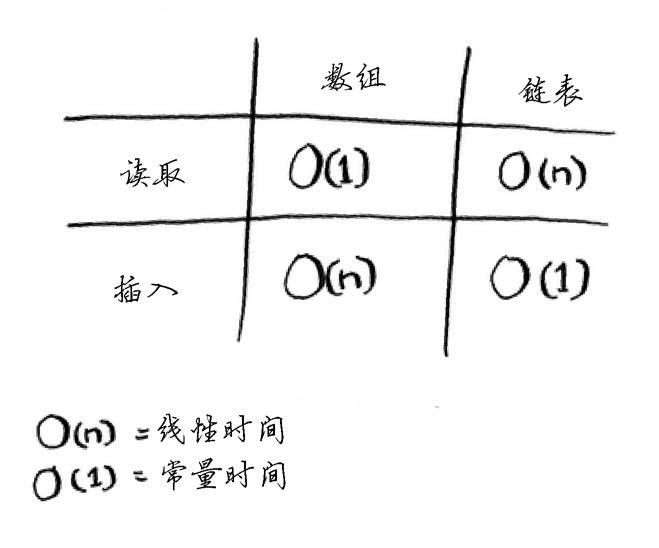 数组 链表
读取 O(1) O(n)
插入 O(n) O(1)
O(n) = 线性时间
O(1) = 常量时间